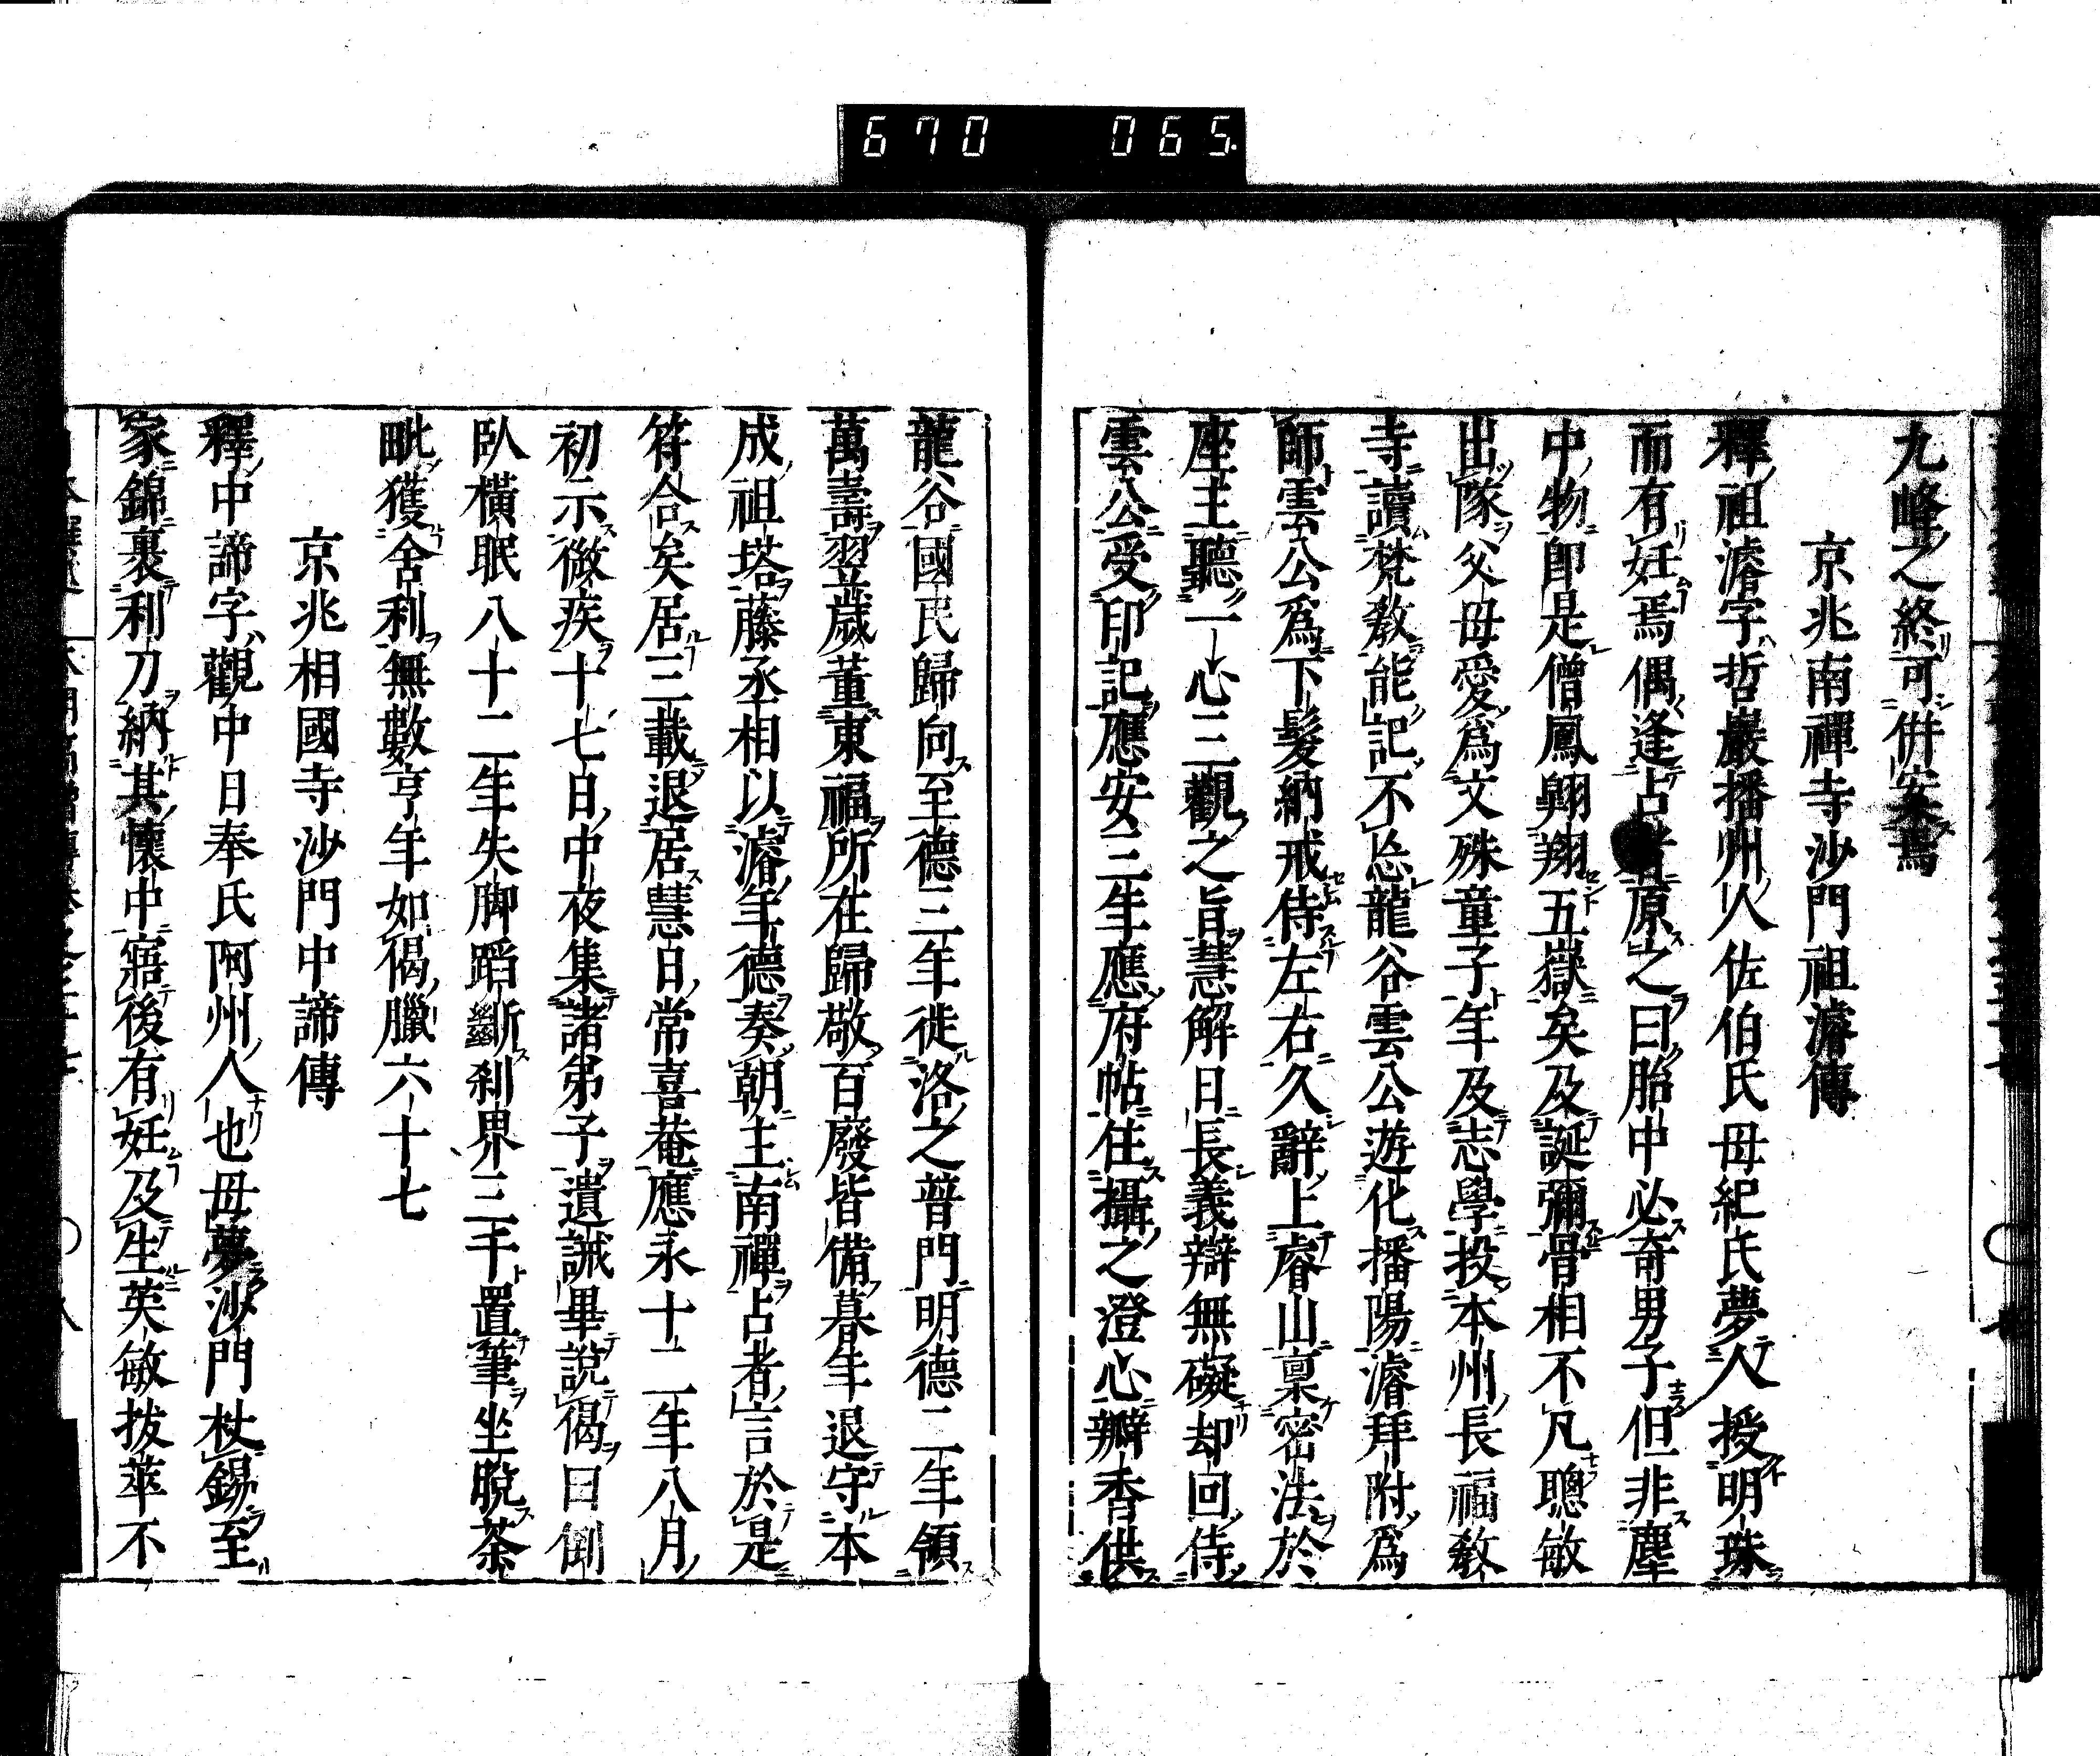 670 065
九峰之終可併案焉
京兆南禪寺沙門祖濬傳
釋祖濬字哲巖播州人佐伯氏母紀氏夢人授明珠
而有妊焉偶逢占者原之曰胎中必奇男子但非塵
中物卽是僧鳳翺翔五嶽矣及誕彌骨相不凡聰敏
出隊父母愛爲文殊童子年及志學投本州長福敎
寺讀梵敎能記不忘龍谷雲公遊化播陽濬拜附爲
師雲公爲下髮納戒侍左右久辭上睿山稟密法於
座主聽一心三觀之旨慧解日長義辯無礙却回侍
雲公受印記應安三年應府帖住攝之澄心瓣香供
龍谷國民歸向至德三年徙洛之普門明德二年領
萬壽翌歲董東福所在歸敬百廢皆備暮年退守本
成祖塔藤丞相以濬年德奏朝主南禪占者言於是
符合矣居三載退居慧日常喜菴應永十二年八月
初示微疾十七日中夜集諸弟子遺誡畢說偈曰倒
臥橫眠八十二年失脚蹈斷刹界三千置筆坐脫茶
毗獲舍利無數享年如偈臘六十七
京兆相國寺沙門中諦傳
釋中諦字觀中日奉氏阿州人也母夢沙門杖錫至
家錦裹利刀納其懷中寤後有妊及生英敏拔萃不